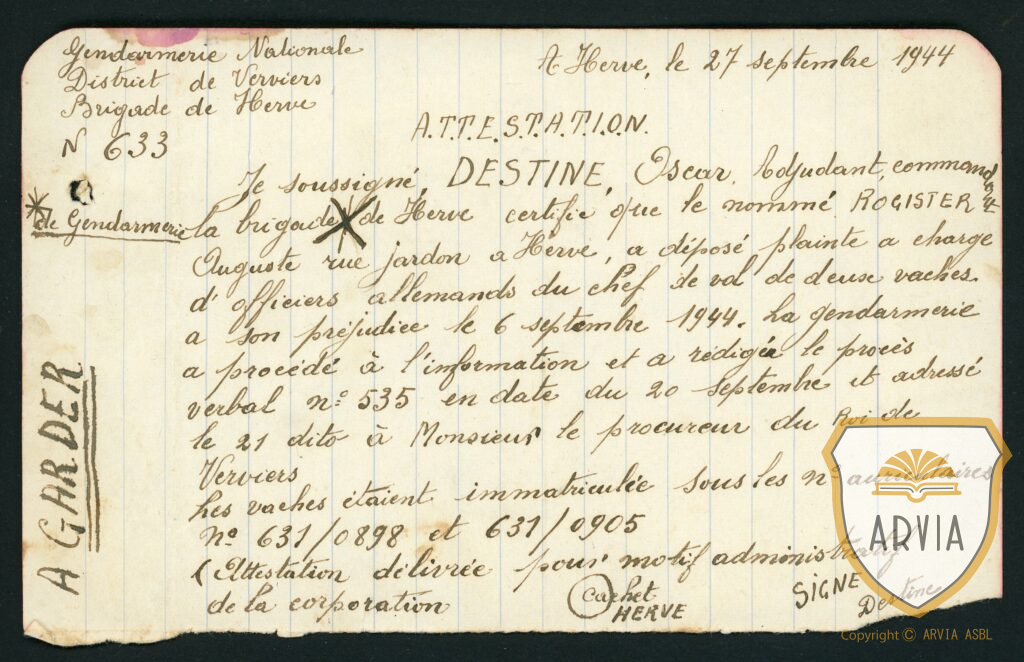 Gendarmerie Nationale
District de Verviers
Brigade de Herve
N 633
A Herve, le 27 septembre 1944
A.T.T.E.S.T.A.T.I.O.N.
Je soussigné, DESTINE, Oscar, Adjudant, commandant
* de Gendarmerie
la brigade * de Herve certifie que le nommé ROGISTER
Auguste rue jardon a Hervé, a déposé plainte a charge
d'officiers allemands du chef de vol de deux vaches.
a son préjudice le 6 septembre 1944. La gendarmerie
a procédé à l'information et a rédigée le procès
verbal n° 535 en date du 20 septembre et adressé
le 21 dito à Monsieur le procureur du Roi de
Verviers
Les vaches étaient immatriculée sous les n° auriculaires
N° 631/0898 et 631/0905
(Attestation délivrée pour motif administratif
de la corporation
cachet
HERVE
SIGNE
Destine
A GARDER
ARVIA
Copyright © ARVIA ASBL